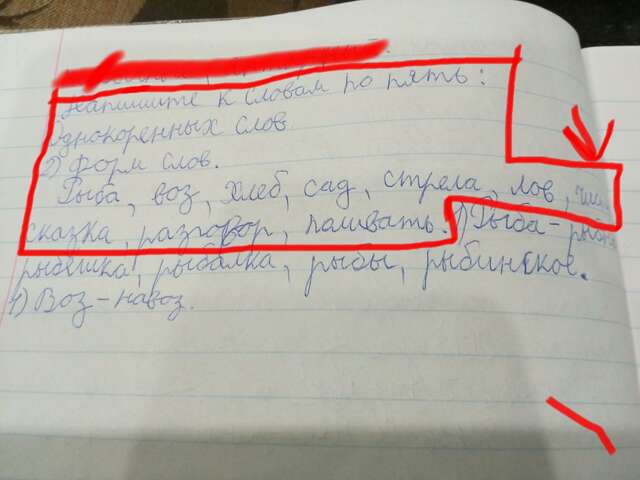 Напишите к словам по пять:
Однокоренных слов
2) Форм слов.
Рыба, воз, хлеб, сад, стрела, лов,
сказка, разговор, поливать. 1) Рыба-
рыбёшка, рыбалка, рыбы, рыбинское.
1) Воз-навоз.